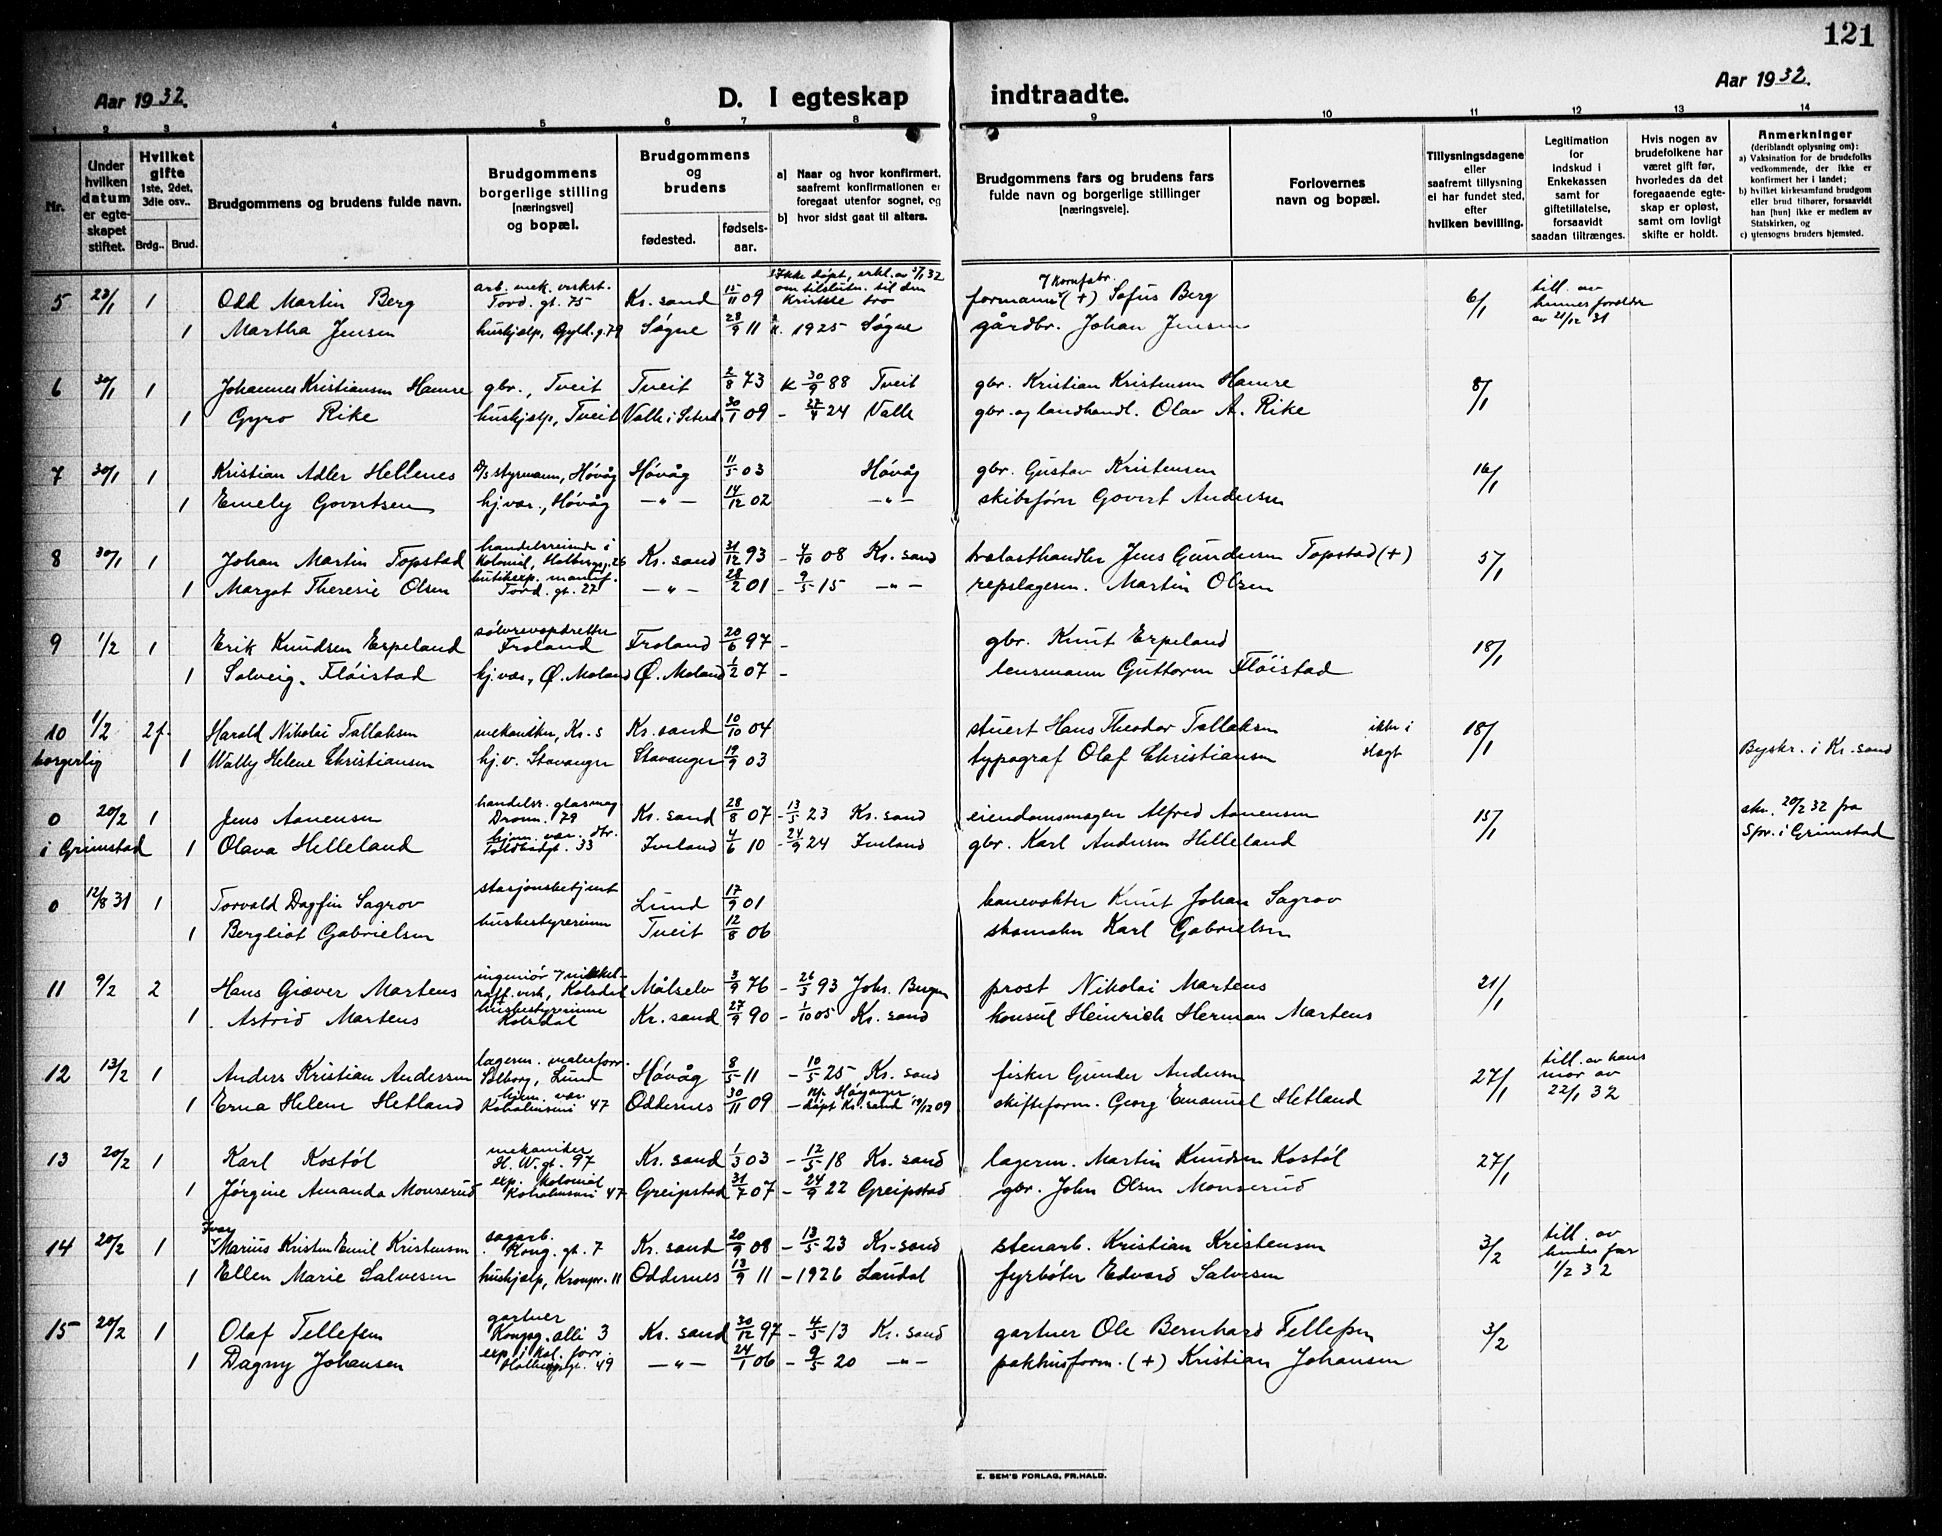 121
Aar 1932.
D. I egteskap indtraadte.
Aar 1932.
1 2 3 4 5 6 7 8 9 10 11 12 13 14
Nr.
Under hvilken datum er egteskapet stiftet.
Hvilket gifte 1ste, 2det, 3die osv..
Brdg.. Brud.
Brudgommens og brudens fulde navn.
Brudgommens borgerlige stilling [næringsvei] og bopæl.
Brudgommens og brudens
fødested. fødselsaar.
a) Naar og hvor konfirmert, saafremt konfirmationen er foregaat utenfor sognet, og
b) hvor sidst gaat til alters.
Brudgommens fars og brudens fars fulde navn og borgerlige stillinger [næringsveie].
Forlovernes navn og bopæl.
Tillysningsdagene eller saafremt tillysning ei har fundet sted, efter hvilken bevilling.
Legitimation for indskud i Enkekassen samt for giftetillatelse, forsaavidt saadan tiltrænges.
Hvis nogen av brudefolkene har været gift før, hvorledes da det foregaaende egteskap er opløst, samt om lovligt skifte er holdt.
Anmerkninger (deriblandt oplysning om):
a) Vaksination for de brudefolks vedkommende, der ikke er konfirmert her i landet;
b) hvilket kirkesamfund brudgom eller brud tilhører, forsaavidt han [hun] ikke er medlem av Statskirken, og
c) utensogns bruders hjemsted.
5 23/1 1 Odd Martin Berg arb. mek. verkst. Tord. gt. 75 Kr. sand 15/11 09 Ikke døpt, erkl. av 5/1 32 om tilslutn. til den kristne tro formann (+) Sofus Berg 6/1 till. av hennes forelder av 21/12 31
1 Martha Jensen hushjelp, Gyld. g. 79 Søgne 28/9 11 1925 Søgne gårdbr. Johan Jensen
6 30/1 1 Johannes Kristiansen Hamre gbr., Tveit Tveit 2/8 73 K 30/9 88 Tveit gbr. Kristian Kristensen Hamre 8/1
1 Gyro Rike hushjelp, Tveit Valle i Seterd. 30/1 09 - 27/4 24 Valle gbr. og landhandl. Olav A. Rike
7 30/1 1 Kristian Adler Hellenes D/s styrmann, Høvåg Høvåg 11/5 03 Høvåg gbr. Gustav Kristensen 16/1
1 Emely Govertsen hj. vær., Høvåg —"— 14/12 02 —"— skibsfører Govert Andersen
8 30/1 1 Johan Martin Topstad handelsreisende i kolonial, Holbergsg. 26 Kr. sand 31/12 93 - 4/10 08 Kr. sand trælasthandler Jens Gundersen Topstad (+) 5/1
1 Margot Theresie Olsen butikeksp. manuf. Tord. gt. 27 —"— 28/2 01 - 9/5 15 —"— repslagerm. Martin Olsen
9 1/2 1 Erik Knudsen Erpeland sølvrevopdretter Froland Froland 20/6 97 - gbr. Knut Erpeland 18/1
1 Solveig Fløistad hj. vær., Ø. Moland Ø. Moland 1/2 07 - lensmann Guttorm Fløistad
10 1/2 2f. Harald Nikolai Tallaksen mekaniker, Kr.s Kr. sand 10/10 04 stuert Hans Theodor Tallaksen ikke i 18/1
borgerlig 1 Wally Helene Christiansen hj. v. Stavanger Stavanger 19/9 03 typograf Olaf Christiansen slegt Byskr. i Kr. sand
0 20/2 1 Jens Aanensen handelsr. glasmag. Dronn. 79 Kr. sand 28/8 07 - 13/5 23 Kr. sand eiendomsmegler Alfred Aanensen 15/1 skr. 20/2 32 fra
i Grimstad 1 Olava Helleland hjem. vær. dtr. Tollbodgt. 33 Iveland 4/6 10 - 24/9 24 Iveland gbr. Karl Andersen Helleland Spr. i Grimstad
0 12/8 31 1 Torvald Dagfin Sagrov stasjonsbetjent Lund 17/9 01 banevokter Knut Johan Sagrov
1 Bergliot Gabrielsen husbestyrerinne Tveit 12/8 06 skomaker Karl Gabrielsen
11 9/2 2 Hans Giæver Martens ingeniør v/ nikkelraff. verk, Kolsdal Målselv 3/9 76 - 26/3 93 Joh. Bergen prost Nikolai Martens 21/1
1 Astrid Martens husbestyrerinne Kolsdal Kr. sand 27/9 90 - 1/10 05 Kr. sand konsul Heinrich Herman Martens
12 13/2 1 Anders Kristian Andersen lagerm. malerforr. Solborg, Lund Høvåg 8/5 11 - 10/5 25 Kr. sand fisker Gunder Andersen 27/1 till. av hans mor av 22/1 32
1 Erna Helene Hetland hjem. vær. Kobolnsvei 47 Oddernes 30/11 09 - døpt Kr. sand 19/12 09 skifteform. Georg Emanuel Hetland
13 20/2 1 Karl Kostøl mekaniker H. W. gt. 97 Kr. sand 1/3 03 - 12/5 18 Kr. sand lagerm. Martin Knudsen Kostøl 27/1
1 Jørgine Amanda Monserud exp. kolonial 47 Greipstad 31/7 07 - 24/9 22 Greipstad gbr. John Olsen Monserud
14 20/2 1 Ivar Marius Kristen Emil Kristensen sagarb. Kong. gt. 7 Kr. sand 20/9 08 - 13/5 23 Kr. sand stenarb. Kristian Kristensen 3/2 till. av hendes far 1/2 32
1 Ellen Marie Salvesen hushjelp, Kronpr. 11 Oddernes 13/9 11 - 1926 Laudal fyrbøter Edvard Salvesen
15 20/2 1 Olaf Tellefsen gartner Kongsg. alli 3 Kr. sand 30/12 97 - 4/5 13 Kr. sand gartner Ole Bernhard Tellefsen 3/2
1 Dagny Johansen exp. i kol. forr. Holbergsgt. 49 —"— 24/1 06 - 9/5 20 —"— pakhusform. (+) Kristian Johansen
E. SEM'S FORLAG, FR.HALD.